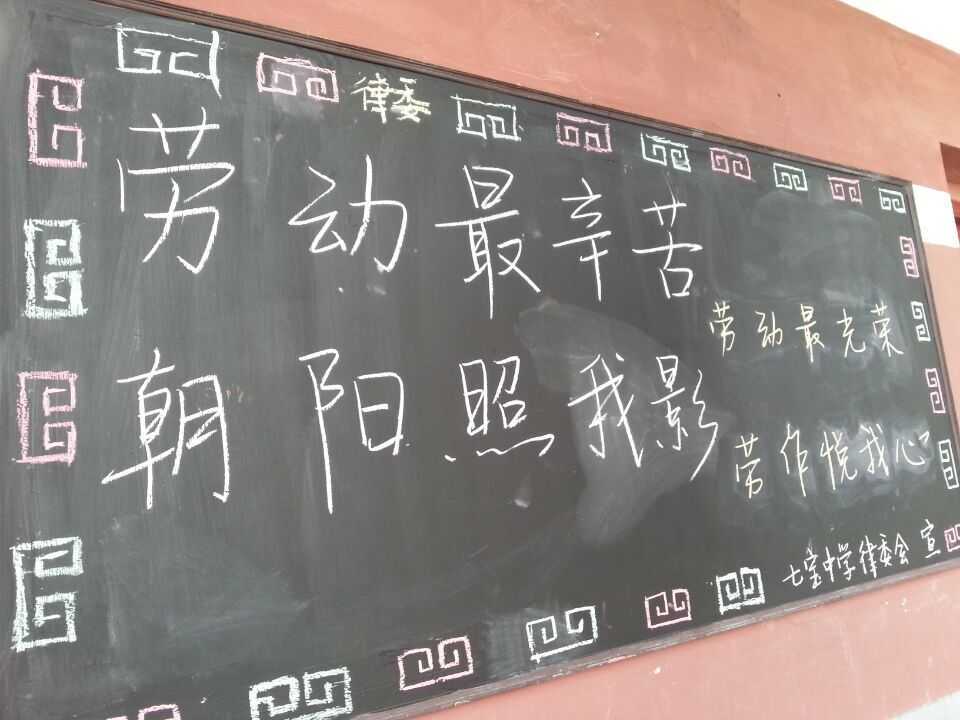 律委
劳动最辛苦
朝阳照我影
劳动最光荣
劳作悦我心
七宝中学律委会 宣